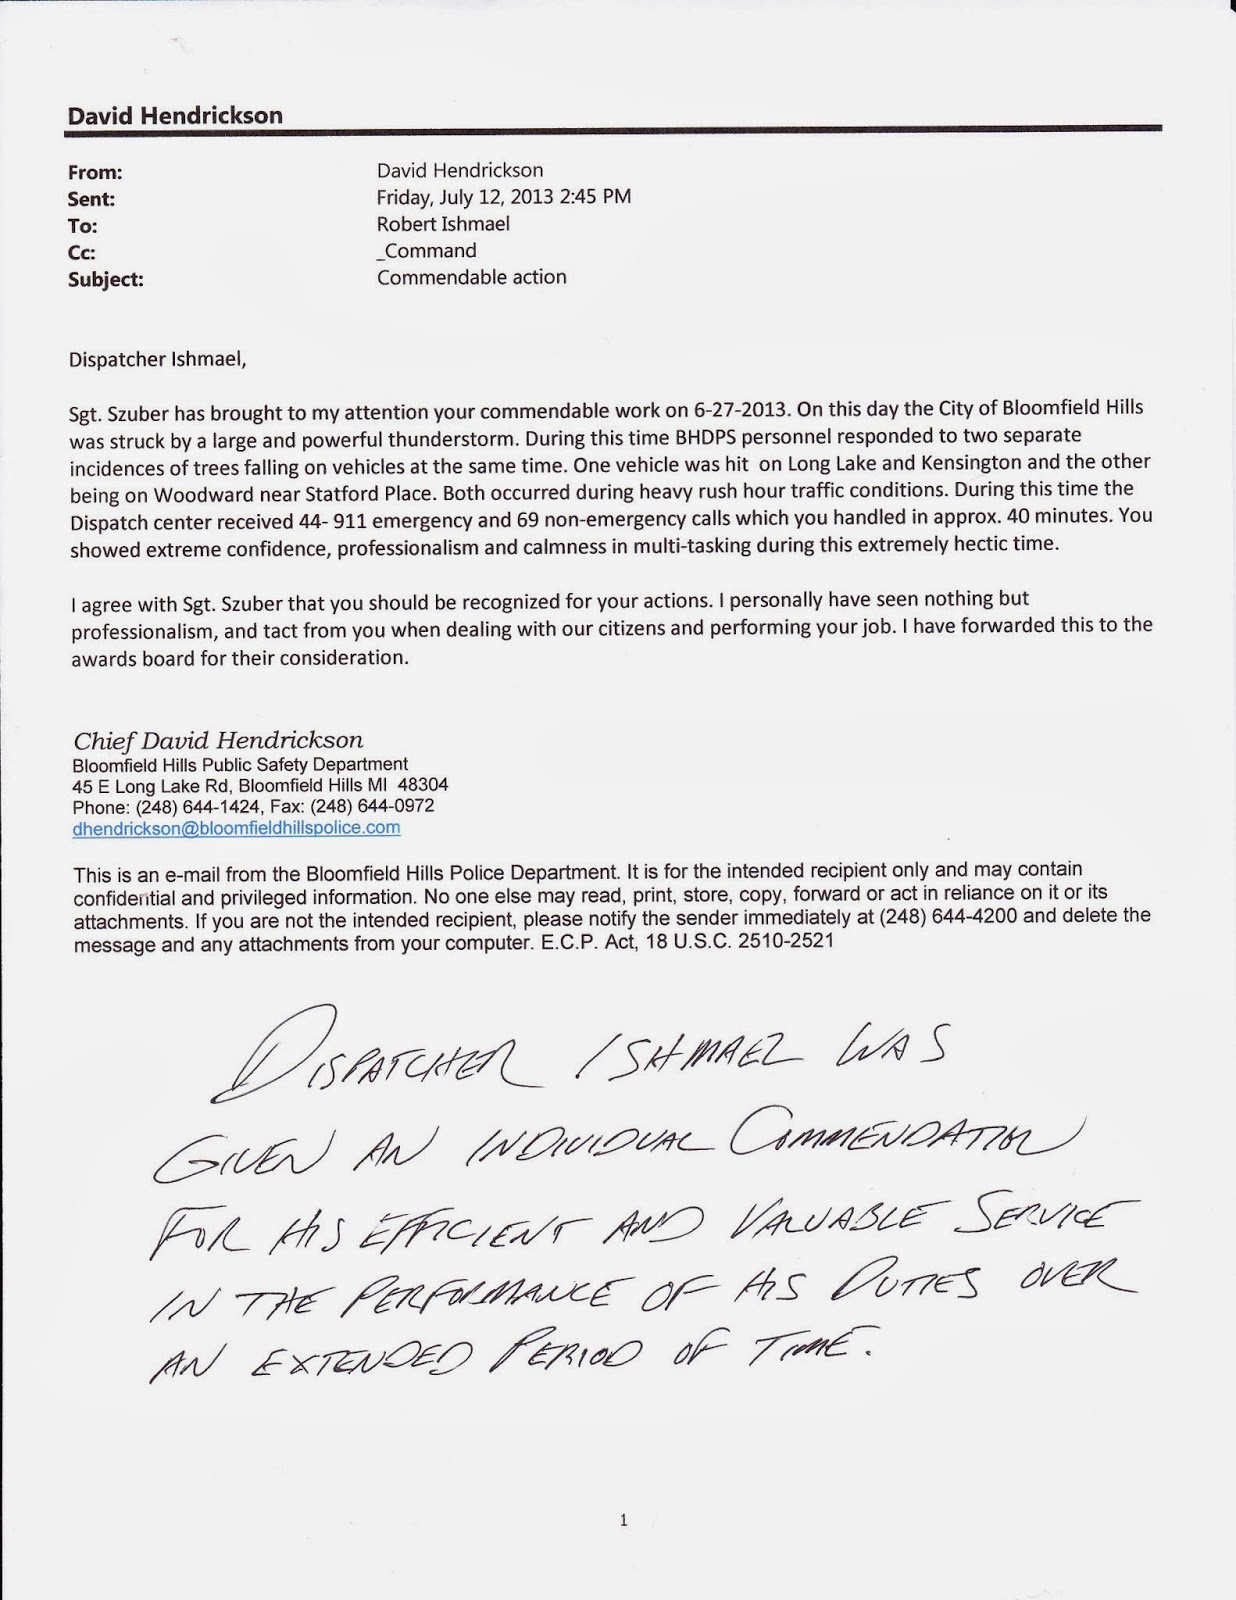 David Hendrickson
From: David Hendrickson
Sent: Friday, July 12, 2013 2:45 PM
To: Robert Ishmael
Cc: _Command
Subject: Commendable action
Dispatcher Ishmael,
Sgt. Szuber has brought to my attention your commendable work on 6-27-2013. On this day the City of Bloomfield Hills
was struck by a large and powerful thunderstorm. During this time BHDPS personnel responded to two separate
incidences of trees falling on vehicles at the same time. One vehicle was hit  on Long Lake and Kensington and the other
being on Woodward near Statford Place. Both occurred during heavy rush hour traffic conditions. During this time the
Dispatch center received 44- 911 emergency and 69 non-emergency calls which you handled in approx. 40 minutes. You
showed extreme confidence, professionalism and calmness in multi-tasking during this extremely hectic time.
I agree with Sgt. Szuber that you should be recognized for your actions. I personally have seen nothing but
professionalism, and tact from you when dealing with our citizens and performing your job. I have forwarded this to the
awards board for their consideration.
Chief David Hendrickson
Bloomfield Hills Public Safety Department
45 E Long Lake Rd, Bloomfield Hills MI  48304
Phone: (248) 644-1424, Fax: (248) 644-0972
dhendrickson@bloomfieldhillspolice.com
This is an e-mail from the Bloomfield Hills Police Department. It is for the intended recipient only and may contain
confidential and privileged information. No one else may read, print, store, copy, forward or act in reliance on it or its
attachments. If you are not the intended recipient, please notify the sender immediately at (248) 644-4200 and delete the
message and any attachments from your computer. E.C.P. Act, 18 U.S.C. 2510-2521
DISPATCHER ISHMAEL WAS
GIVEN AN INDIVIDUAL COMMENDATION
FOR HIS EFFICIENT AND VALUABLE SERVICE
IN THE PERFORMANCE OF HIS DUTIES OVER
AN EXTENDED PERIOD OF TIME.
1